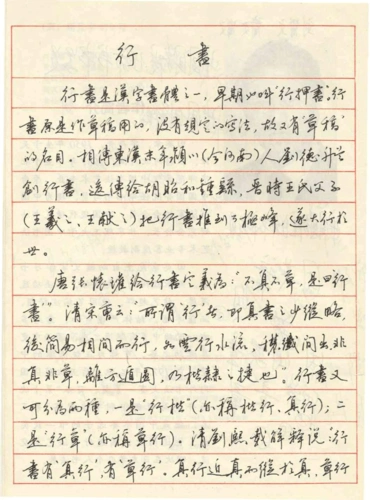 行書
行書是漢字書體之一,早期叫“行押書”。行
書原是作草稿用的,没有規定的写法,故又有“草稿”
的名目。相傳東漢末年潁川(今河南)人劉德升首
創行書,遂傳給胡昭和鍾繇,晋時王氏父子
(王羲之、王献之)把行書推到了極峰,遂大行於
世。
唐張懷瓘给行書定義為:“不真不草,是曰行
書”。清宋曹云:“所謂行者,即真書之少縱略,
後简易相間而行,如雲行水流,穠纖間出,非
真非草,離方遁圓,乃楷隸之捷也”。行書又
可分為兩種,一是“行楷”(亦稱楷行、真行);二
是“行草”(亦稱草行)。清劉熙載解释説:“行
書有“真行”,有“草行”,真行近真而縱於真,草行